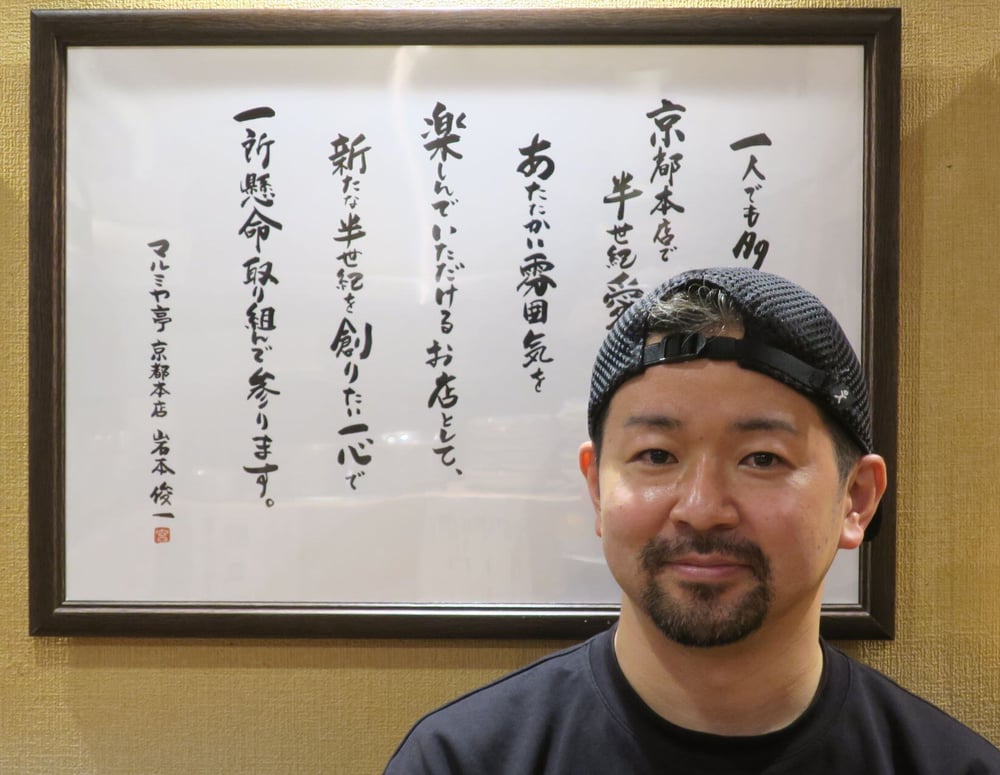 一人でも多
京都本店で
半世紀愛
あたたかい雰囲気を
楽しんでいただけるお店として、
新たな半世紀を創りたい一心で
一所懸命取り組んで参ります。
マルミヤ亭 京都本店 岩本 俊一
宮